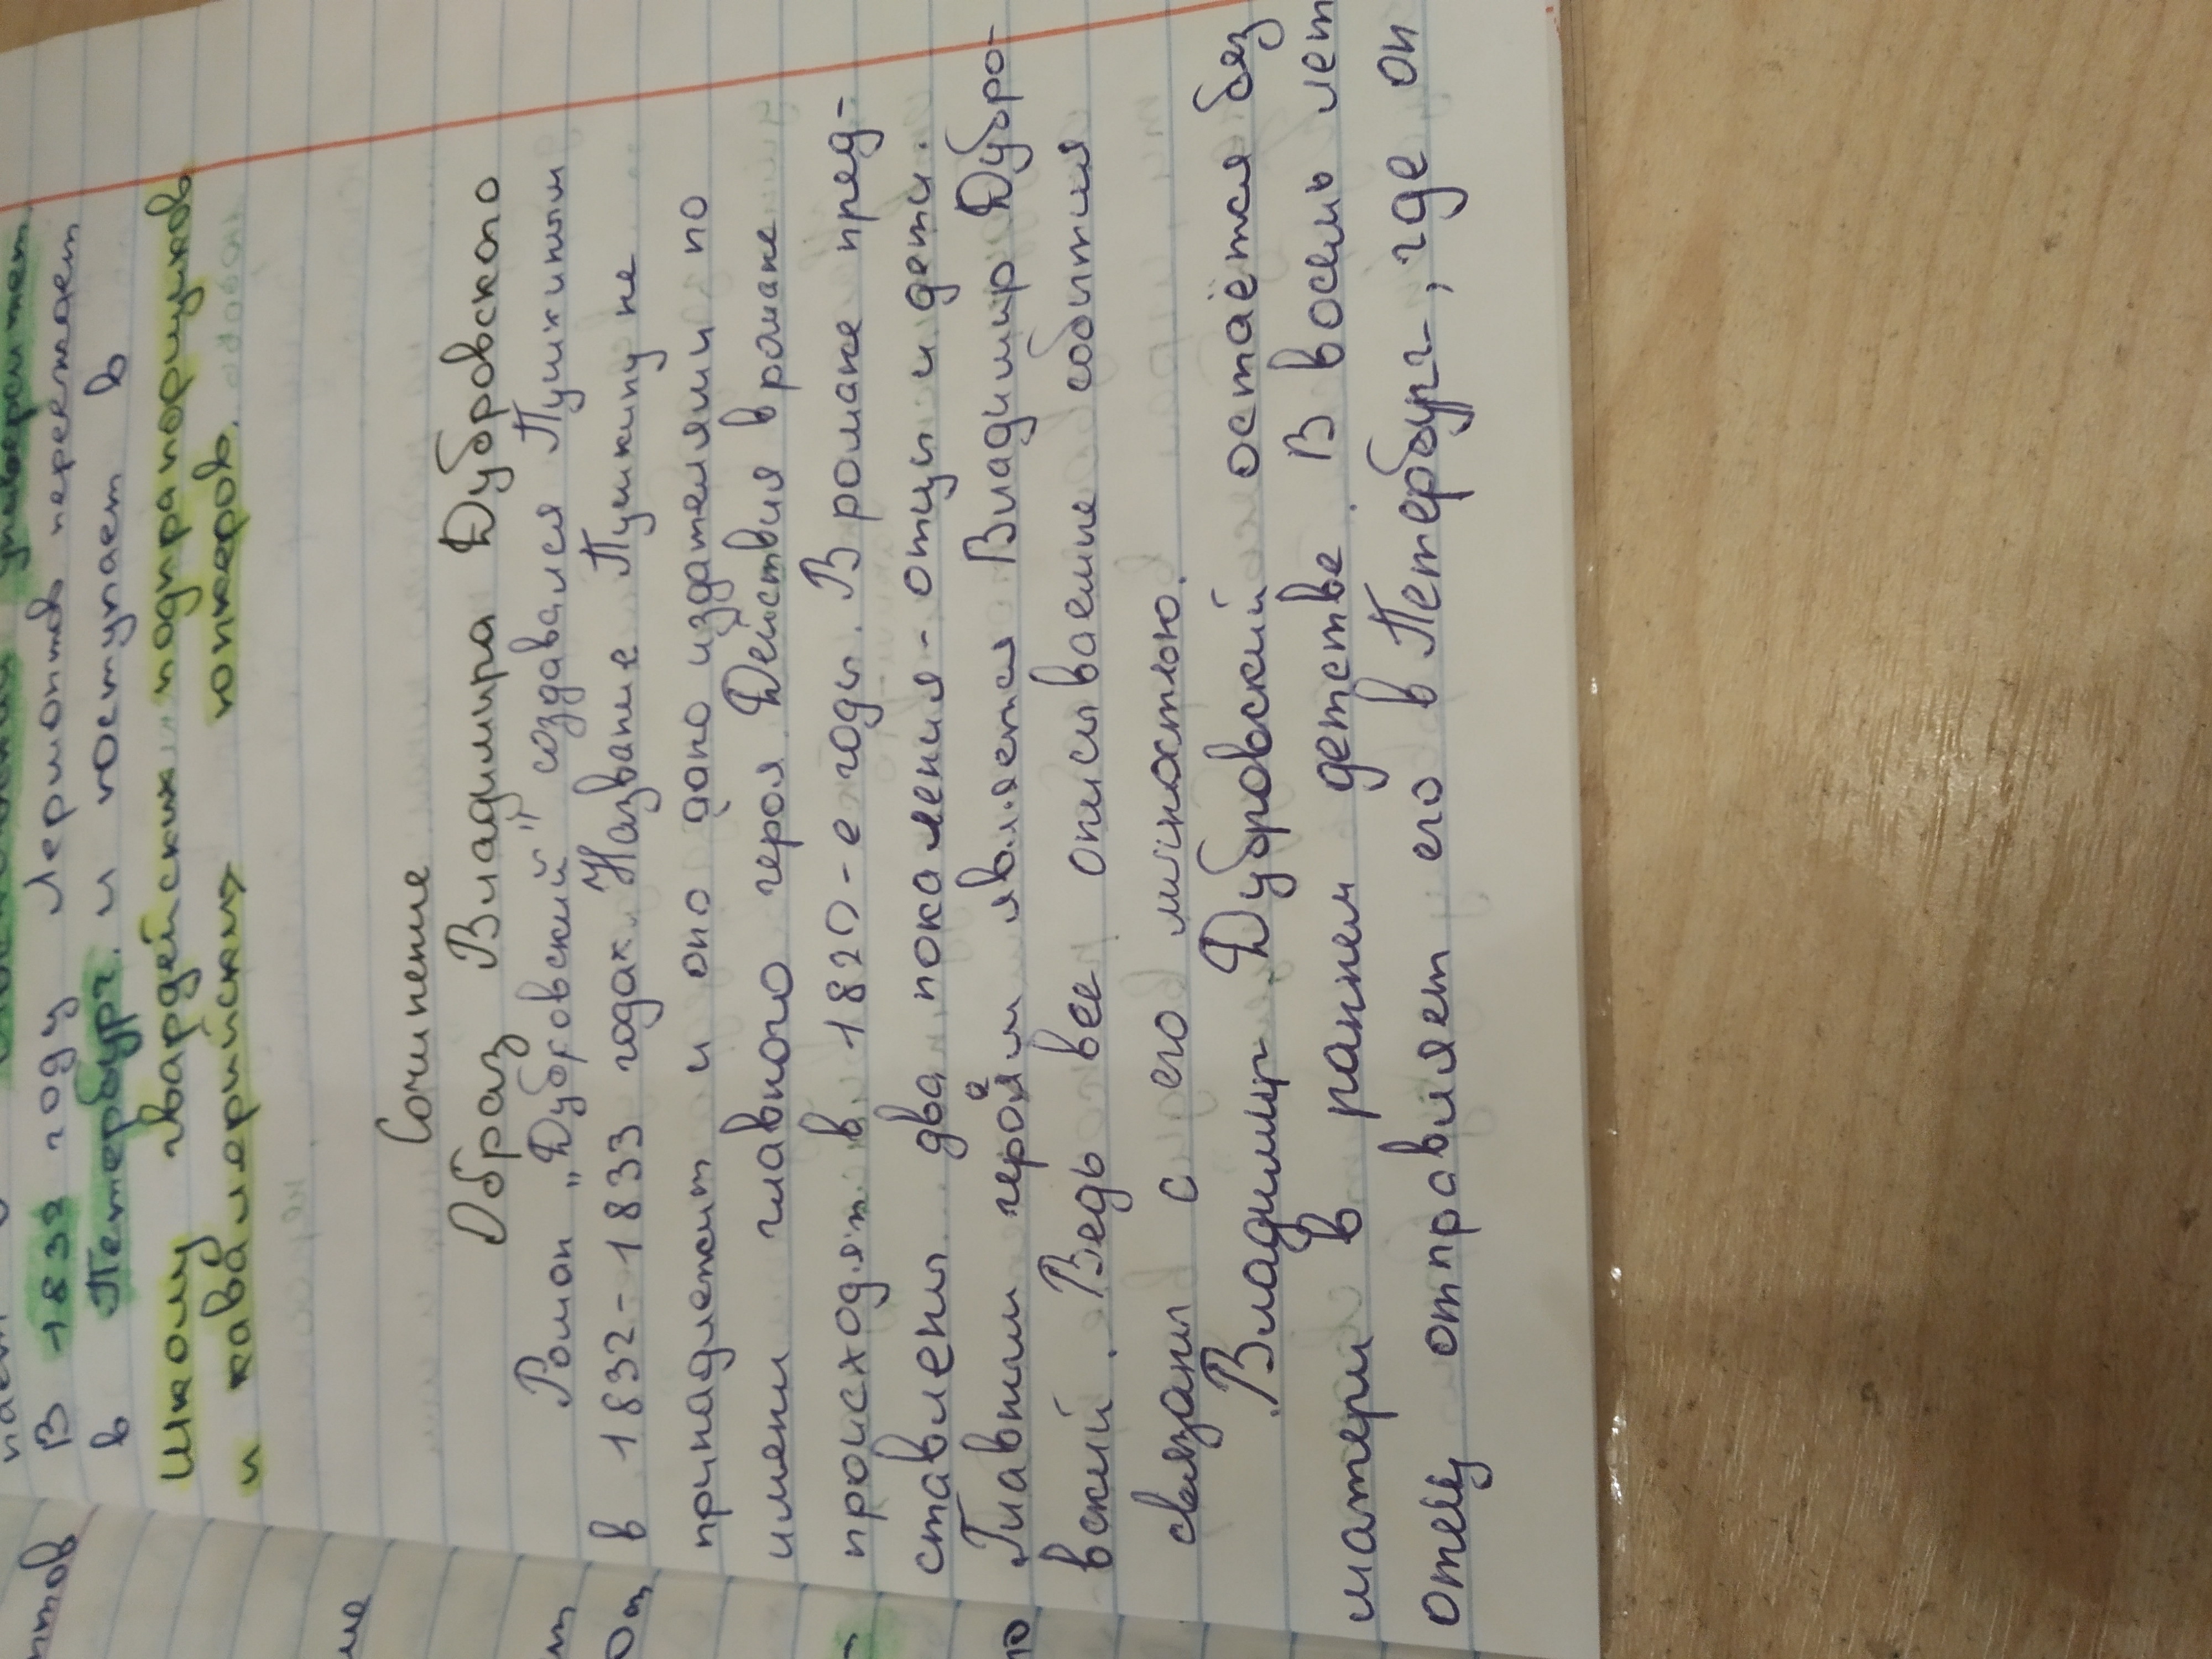 В 1832 году Лермонтов переезжает
в Петербург. и поступает в
школу гвардейских подпрапорщиков
и кавалерийских юнкеров.
Сочинение
Образ Владимира Дубровского
Роман „Дубровский" создавался Пушкиным
в 1832-1833 годах. Название Пушкину не
принадлежит и оно дано издателями по
имени главного героя. Действия в романе
происходят в 1820-е годы. В романе пред-
ставлены два покаления - отцы и дети.
Главным героем является Владимир Дубро-
вский. Ведь все описываемие собития
связани с его личностью.
Владимир Дубровский остаётся без
матери в раннем детстве. В восемь лет
отец отправляет его в Петербург, где он